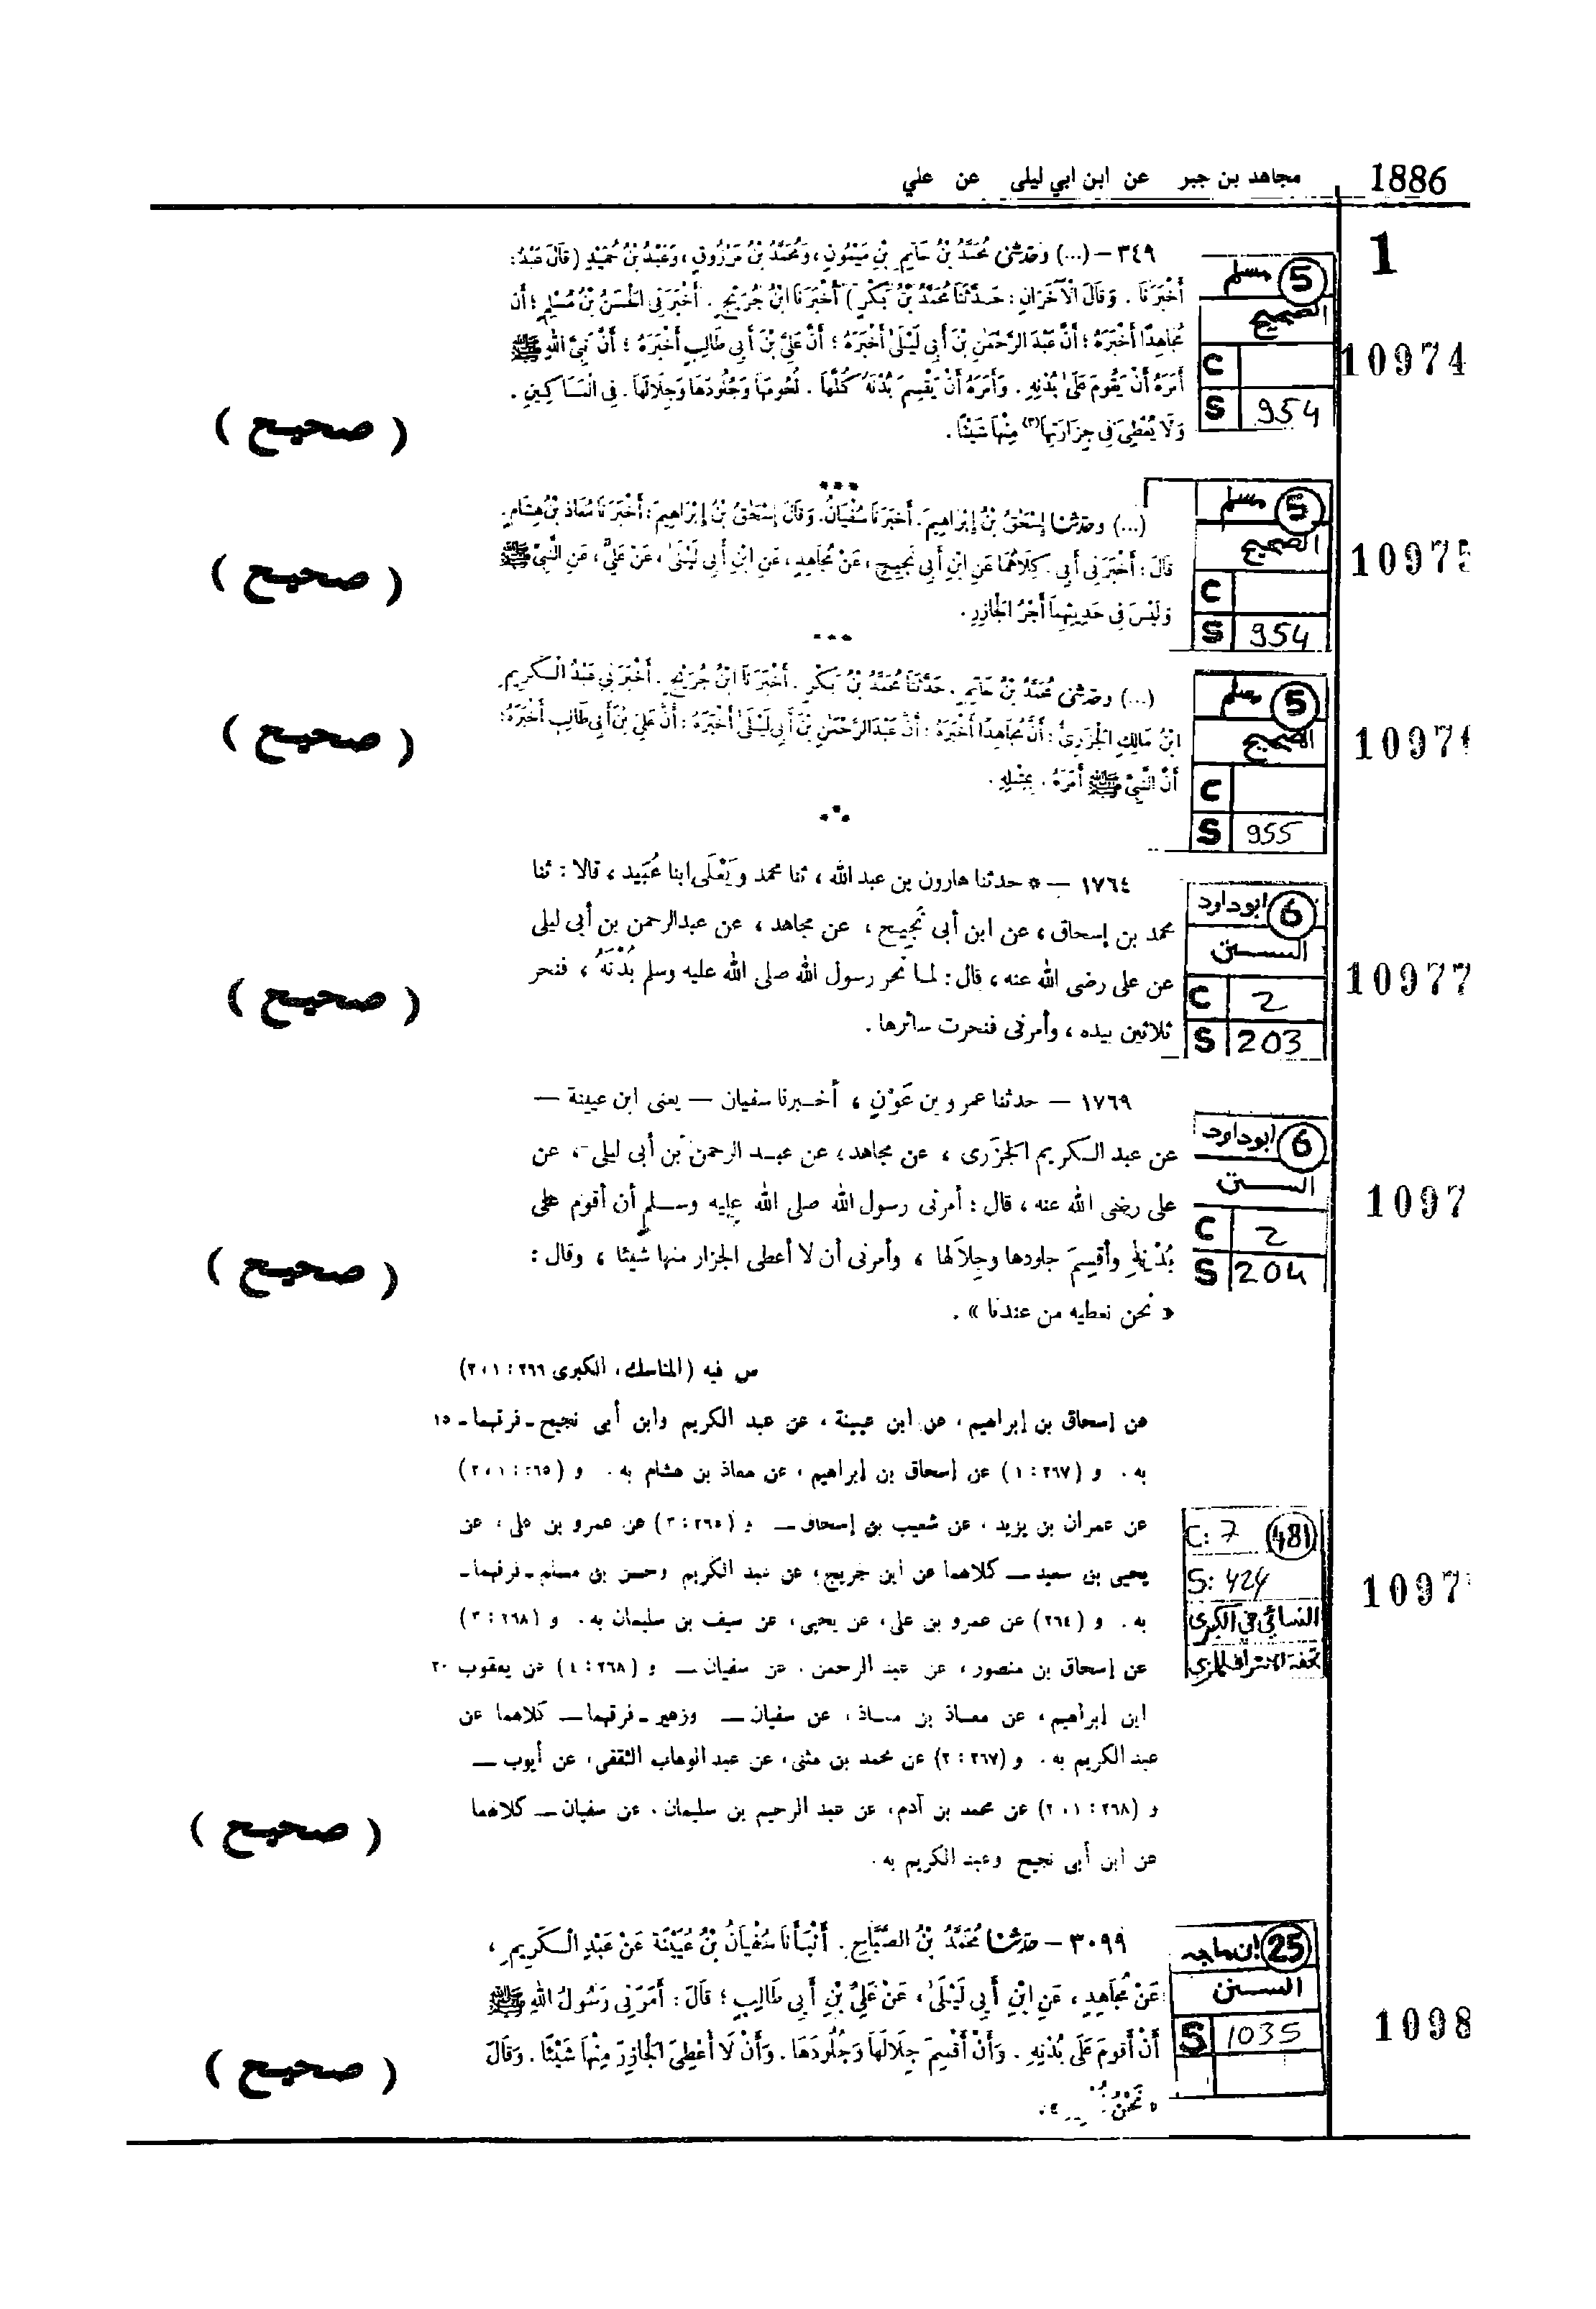 1886 مجاهد بن جبر عن ابن ابي ليلى عن علي
1
٣٤٩ – (...) وحَدَّثَنِي مُحَمَّدُ بْنُ حَاتِمِ بْنِ مَيْمُونٍ، وَمُحَمَّدُ بْنُ مَرْزُوقٍ، وَعَبْدُ بْنُ حُمَيْدٍ (قَالَ عَبْدٌ:
أَخْبَرَنَا. وَقَالَ الْآخَرَانِ: حَدَّثَنَا مُحَمَّدُ بْنُ بَكْرٍ) أَخْبَرَنَا ابْنُ جُرَيْجٍ. أَخْبَرَنِي الْحَسَنُ بْنُ مُسْلِمٍ؛ أَن
مُجَاهِدًا أَخْبَرَهُ؛ أَنَّ عَبْدَ الرَّحْمٰنِ بْنَ أَبِي لَيْلَىٰ أَخْبَرَهُ؛ أَنَّ عَلِيَّ بْنَ أَبِي طَالِبٍ أَخْبَرَهُ؛ أَنَّ نَبِيَّ اللهِ ﷺ
أَمَرَهُ أَنْ يَقُومَ عَلَىٰ بُدْنِهِ. وَأَمَرَهُ أَنْ يَقْسِمَ بُدْنَهُ كُلَّهَا. لُحُومَهَا وَجُلُودَهَا وَجِلَالَهَا. فِي الْمَسَاكِينِ.
وَلَا يُعْطِيَ فِي جِزَارَتِهَا(٣) مِنْهَا شَيْئًا.
5 مسلم
الصحيح
C
S 954
10974
( صحيح )
***
(...) وحَدَّثَنَا إِسْحَٰقُ بْنُ إِبْرَاهِيمَ. أَخْبَرَنَا سُفْيَانُ. وَقَالَ إِسْحَٰقُ بْنُ إِبْرَاهِيمَ: أَخْبَرَنَا مُعَاذُ بْنُ هِشَامٍ.
قَالَ: أَخْبَرَنِي أَبِي. كِلَاهُمَا عَنِ ابْنِ أَبِي نَجِيحٍ، عَنْ مُجَاهِدٍ، عَنِ ابْنِ أَبِي لَيْلَىٰ، عَنْ عَلِيٍّ، عَنِ النَّبِيِّ ﷺ
وَلَيْسَ فِي حَدِيثِهِمَا أَجْرُ الْجَازِرِ.
5 مسلم
الصحيح
C
S 954
10975
( صحيح )
***
(...) وحَدَّثَنِي مُحَمَّدُ بْنُ حَاتِمٍ. حَدَّثَنَا مُحَمَّدُ بْنُ بَكْرٍ. أَخْبَرَنَا ابْنُ جُرَيْجٍ. أَخْبَرَنِي عَبْدُ الْكَرِيمِ
ابْنُ مَالِكٍ الْجَزَرِيُّ؛ أَنَّ مُجَاهِدًا أَخْبَرَهُ؛ أَنَّ عَبْدَ الرَّحْمٰنِ بْنَ أَبِي لَيْلَىٰ أَخْبَرَهُ؛ أَنَّ عَلِيَّ بْنَ أَبِي طَالِبٍ أَخْبَرَهُ؛
أَنَّ النَّبِيَّ ﷺ أَمَرَهُ. بِمِثْلِهِ.
5 مسلم
الصحيح
C
S 955
1097
( صحيح )
***
١٧٦٤ – * حدثنا هارون بن عبد الله، ثنا محمد ويَعْلَى ابنا عُبَيد، قالا: ثنا
محمد بن إسحاق، عن ابن أبى نَجِيح، عن مجاهد، عن عبدالرحمن بن أبى ليلى
عن على رضى الله عنه، قال: لما نحر رسول الله صلى الله عليه وسلم بُدْنَهُ، فنحر
ثلاثين بيده، وأمرنى فنحرت سائرها.
6 ابوداود
السنن
C 2
S 203
10977
( صحيح )
١٧٦٩ – حدثنا عمرو بن عَوْنٍ، أخبرنا سفيان – يعنى ابن عيينة –
عن عبد الكريم الجَزَرى، عن مجاهد، عن عبد الرحمن بن أبى ليلى، عن
على رضى الله عنه، قال: أمرنى رسول الله صلى الله عليه وسلم أن أقوم على
بُدْنِهِ وأقسِمَ جلودها وجِلاَلها، وأمرنى أن لا أعطى الجزار منها شيئا، وقال:
« نحن نعطيه من عندنا ».
6 ابوداود
السنن
C 2
S 204
1097
( صحيح )
س فيه (المناسك، الكبرى ٢٦٦: ١، ٢)
عن إسحاق بن إبراهيم، عن ابن عيينة، عن عبد الكريم وابن أبى نجيح - فرقهما - ١٥
به. و (٢٦٧: ١) عن إسحاق بن إبراهيم، عن معاذ بن هشام به. و (٢٦٥: ١، ٢)
عن عمران بن يزيد، عن شعيب بن إسحاق – و (٢٦٥: ٣) عن عمرو بن على، عن
يحيى بن سعيد – كلاهما عن ابن جريج، عن عبد الكريم وحسن بن مسلم - فرقهما -
به. و (٢٦٤) عن عمرو بن على، عن يحيى، عن سيف بن سليمان به. و (٢٦٨: ٣)
عن إسحاق بن منصور، عن عبد الرحمن، عن سفيان – و (٢٦٨: ٤) عن يعقوب ٢٠
ابن إبراهيم، عن معاذ بن معاذ، عن سفيان – وزهير - فرقهما – كلاهما عن
عبد الكريم به. و (٢٦٧: ٢) عن محمد بن مثنى، عن عبد الوهاب الثقفى، عن أيوب –
و (٢٦٨: ١، ٢) عن محمد بن آدم، عن عبد الرحيم بن سليمان، عن سفيان – كلاهما
عن ابن أبى نجيح وعبد الكريم به.
481 C: 7
S: 424
النسائي في الكبرى
تحفة الاشراف للمزي
1097
( صحيح )
٣٠٩٩ – حَدَّثَنَا مُحَمَّدُ بْنُ الصَّبَّاحِ. أَنْبَأَنَا سُفْيَانُ بْنُ عُيَيْنَةَ عَنْ عَبْدِ الْكَرِيمِ،
عَنْ مُجَاهِدٍ، عَنِ ابْنِ أَبِي لَيْلَىٰ، عَنْ عَلِيِّ بْنِ أَبِي طَالِبٍ؛ قَالَ: أَمَرَنِي رَسُولُ اللهِ ﷺ
أَنْ أَقُومَ عَلَى بُدْنِهِ. وَأَنْ أَقْسِمَ جِلَالَهَا وَجُلُودَهَا. وَأَنْ لَا أُعْطِيَ الْجَازِرَ مِنْهَا شَيْئًا. وَقَالَ
« نَحْنُ
25 ابن ماجه
السنن
S 1035
1098
( صحيح )